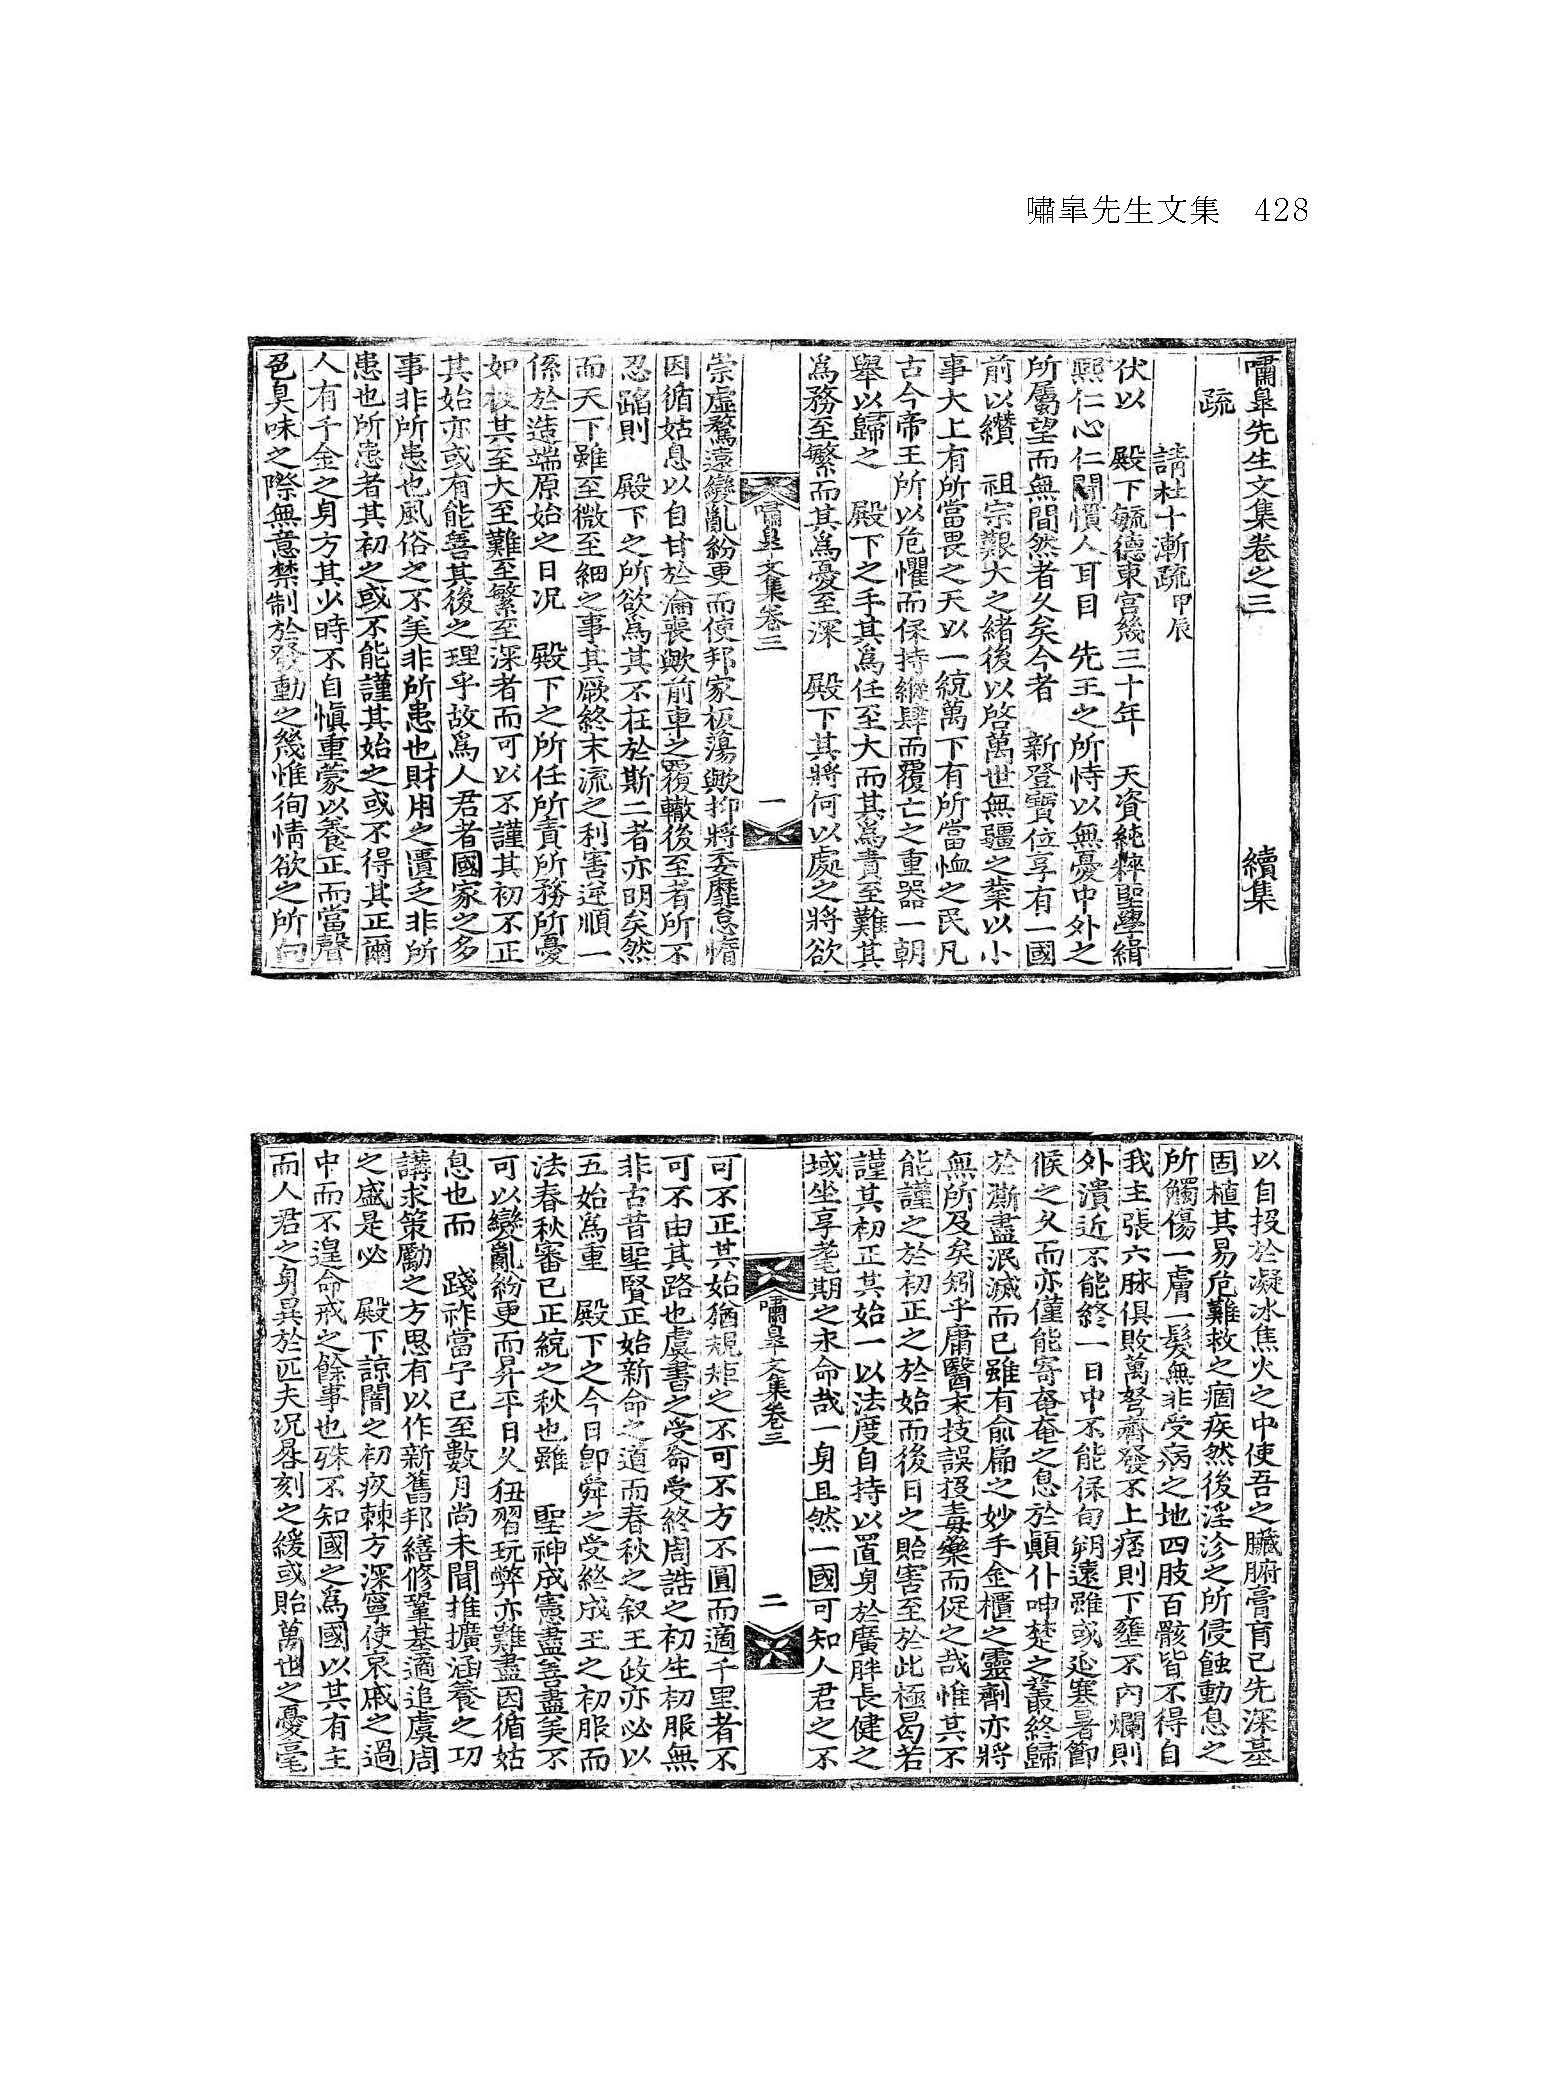 嘯皐先生文集 428
嘯皐先生文集卷之三 續集
疏
請杜十漸疏甲辰
伏以 殿下毓德東宮幾三十年 天資純粹聖學緝
熙仁心仁聞慣人耳目 先王之所恃以無憂中外之
所屬望而無間然者久矣今者 新登寶位享有一國
前以纘 祖宗艱大之緖後以啓萬世無疆之業以小
事大上有所當畏之天以一統萬下有所當恤之民凡
古今帝王所以危懼而保持縱肆而覆亡之重器一朝
舉以歸之 殿下之手其爲任至大而其爲責至難其
爲務至繁而其爲憂至深 殿下其將何以處之將欲
嘯皐文集卷三 一
崇虛騖遠變亂紛更而使邦家板蕩歟抑將委靡怠惰
因循姑息以自甘於淪喪歟前車之覆轍後至者所不
忍蹈則 殿下之所欲爲其不在於斯二者亦明矣然
而天下雖至微至細之事其厥終末流之利害逆順一
係於造端原始之日况 殿下之所任所責所務所憂
如彼其至大至難至繁至深者而可以不謹其初不正
其始亦或有能善其後之理乎故爲人君者國家之多
事非所患也風俗之不美非所患也財用之匱乏非所
患也所患者其初之或不能謹其始之或不得其正爾
人有千金之身方其少時不自愼重蒙以養正而當聲
色臭味之際無意禁制於發動之幾惟徇情欲之所向
以自投於凝冰焦火之中使吾之臟腑膏肓已先深基
固植其易危難救之痼疾然後淫沴之所侵蝕動息之
所觸傷一膚一髮無非受病之地四肢百骸皆不得自
我主張六脉俱敗萬孥齊發不上痞則下壅不內爛則
外潰近不能終一日中不能保旬朔遠雖或延寒暑節
候之久而亦僅能寄奄奄之息於顚仆呻楚之叢終歸
於澌盡泯滅而已雖有俞扁之妙手金櫃之靈劑亦將
無所及矣矧乎庸醫末技誤投毒藥而促之哉惟其不
能謹之於初正之於始而後日之貽害至於此極曷若
謹其初正其始一以法度自持以置身於廣胖長健之
域坐享耄期之永命哉一身且然一國可知人君之不
嘯皐文集卷三 二
可不正其始猶規矩之不可不方不圓而適千里者不
可不由其路也虞書之受命受終周誥之初生初服無
非古昔聖賢正始新命之道而春秋之叙王政亦必以
五始爲重 殿下之今日卽舜之受終成王之初服而
法春秋審已正統之秋也雖 聖神成憲盡善盡美不
可以變亂紛更而昇平日久狃習玩弊亦難盡因循姑
息也而 踐祚當宁已至數月尚未聞推擴涵養之功
講求策勵之方思有以作新舊邦繕修鞏基適追虞周
之盛是必 殿下諒闇之初疚棘方深寧使哀戚之過
中而不遑命戒之餘事也殊不知國之爲國以其有主
而人君之身異於匹夫况晷刻之緩或貽萬世之憂毫